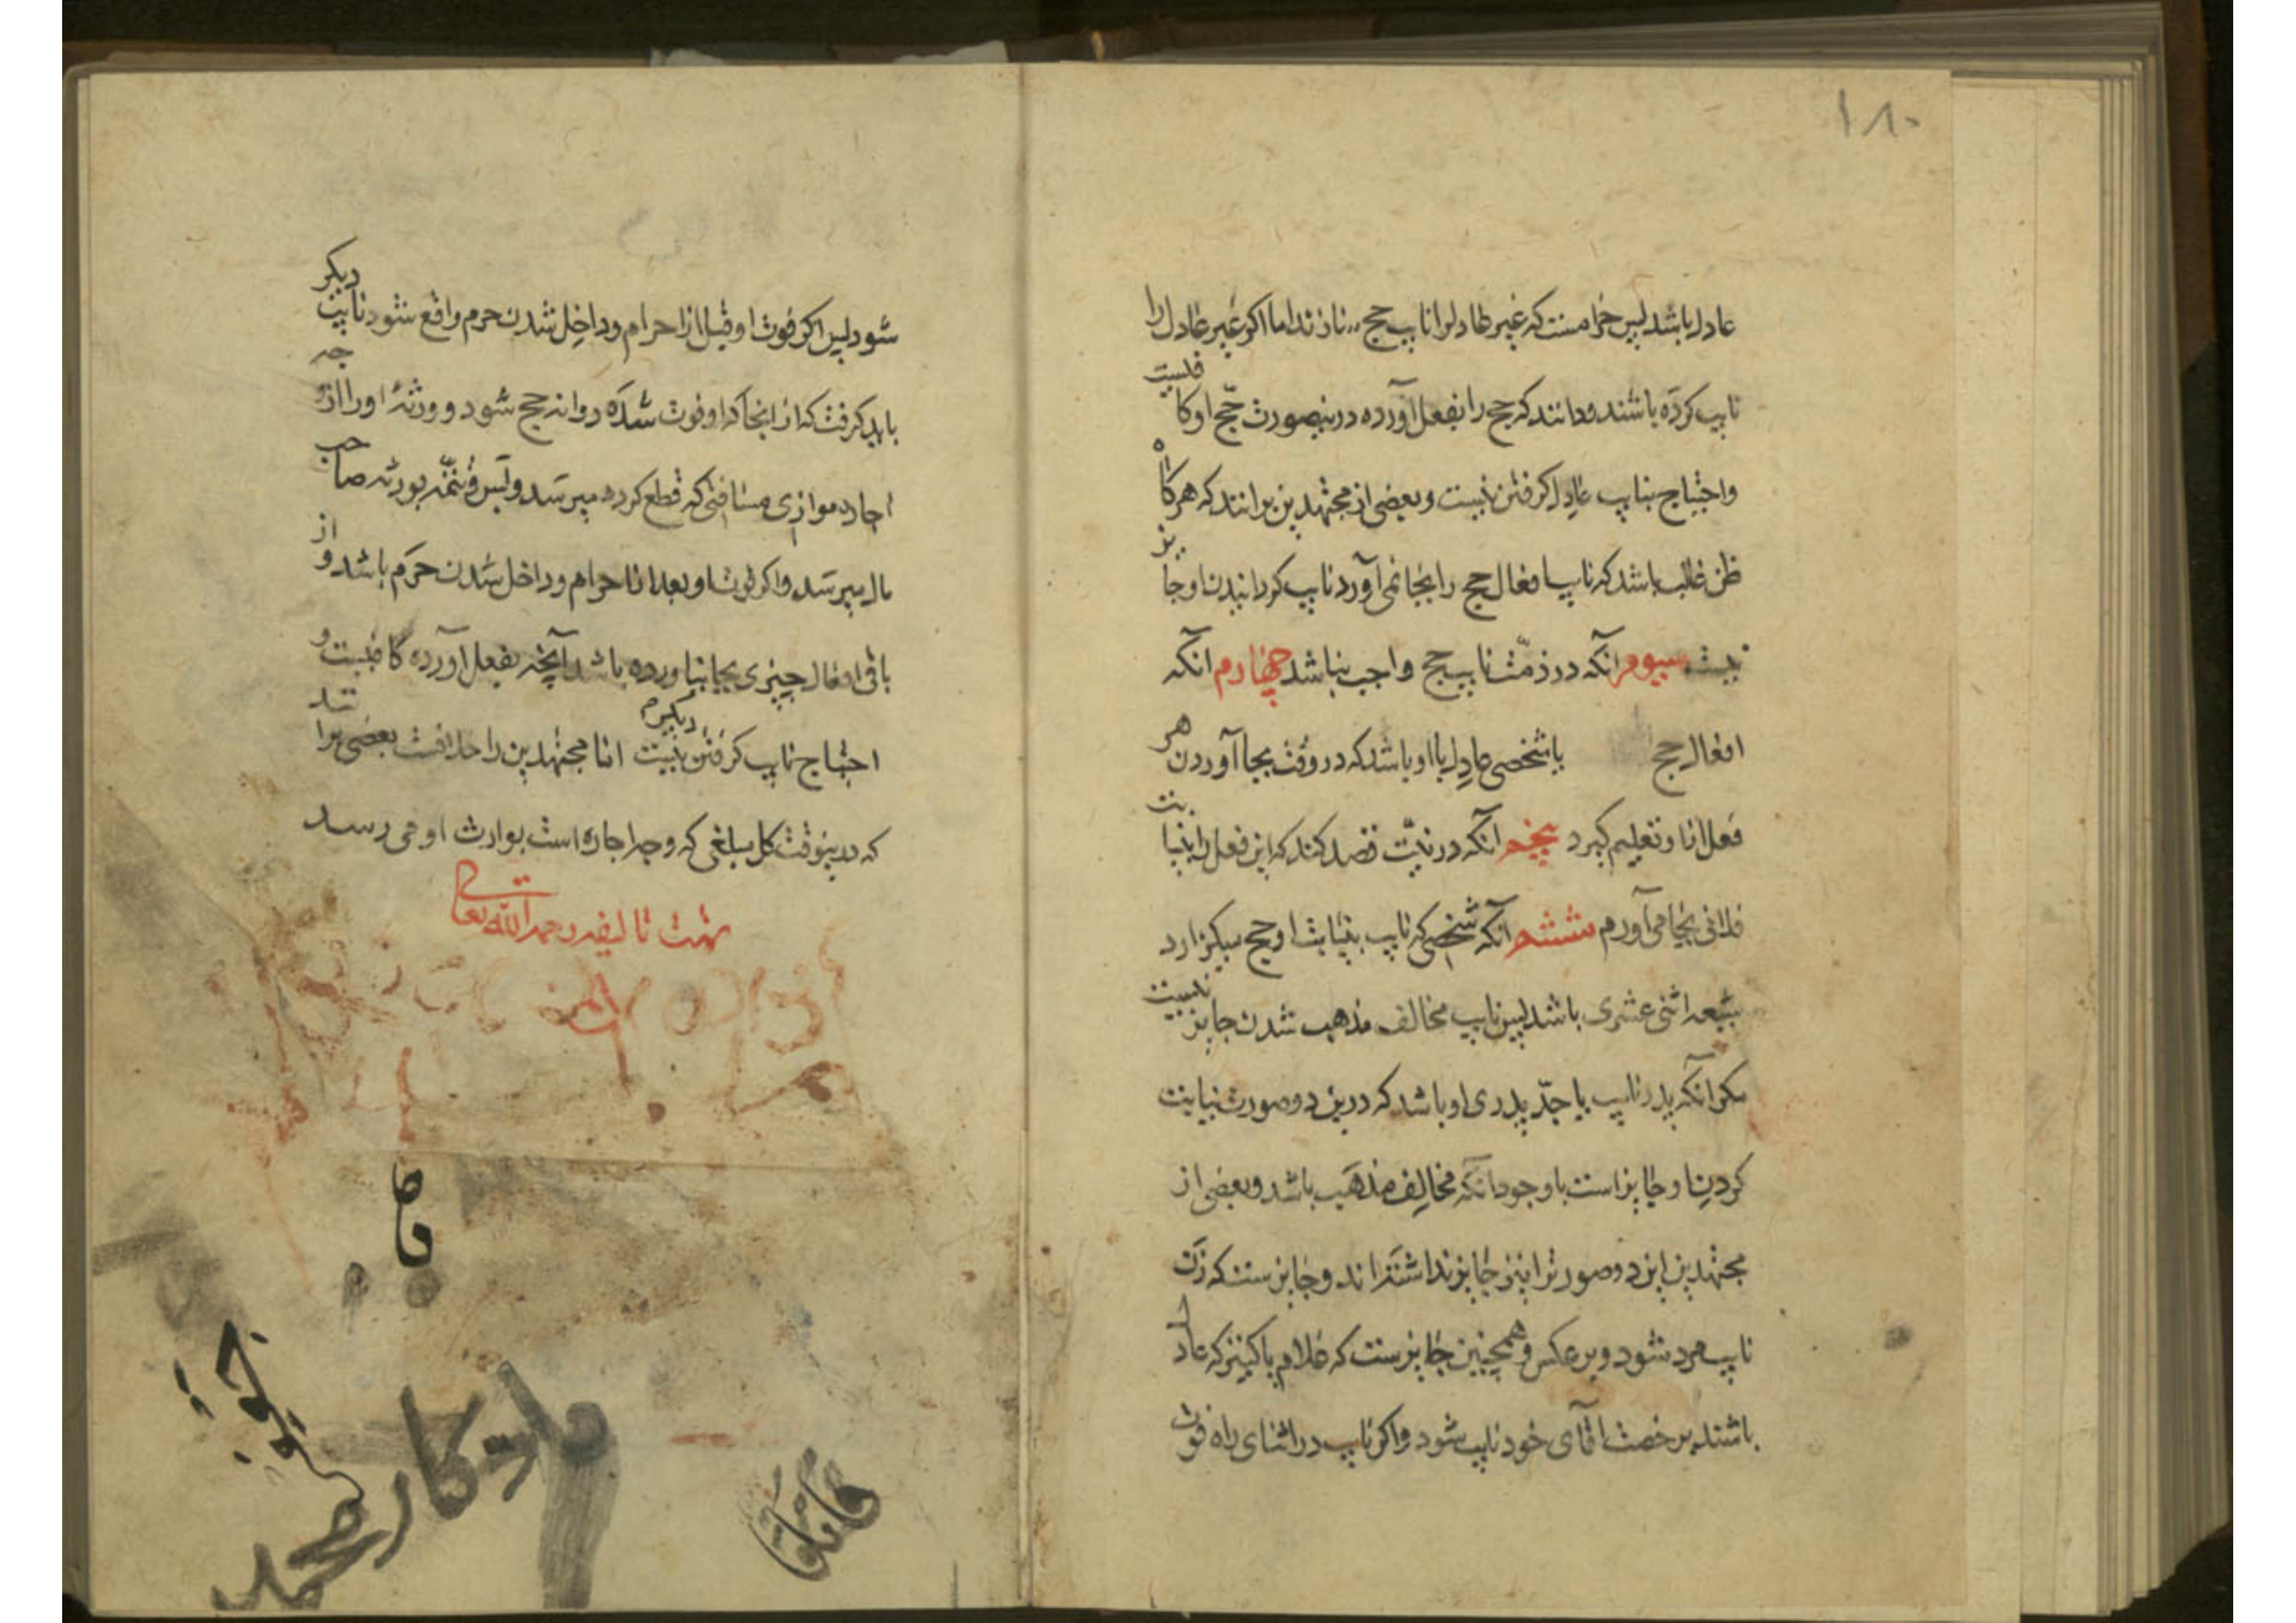 ۱۸۰
عادل باشد پس حرامست که غیر عادلرا نایب حج سازند اما اکر غیر عادل را
نایب کرده باشند و دانند که حج را بفعل آورده درینصورت حج او کافیست
واحتیاج بنایب عادل کرفتن نیست وبعضی از مجتهدین برانند که هرکاه
ظن غالب باشد که نایب افعال حج را بجا نمی آورد نایب کردانیدن او جایز
نیست سیوم آنکه در ذمت نایب حج واجب نباشد چهارم آنکه
افعال حج باشخصی عادل با او باشد که در وقت بجا آوردن هر
فعل انا و تعلیم کیرد پنجم آنکه در نیت قصد کند که این فعل را بنیابت
فلانی بجا می آورم ششم آنکه شخصی که نایب بنیابت او حج میکزارد
شیعه اثنی عشری باشد پس نایب مخالف مذهب شدن جایز نیست
مکر آنکه پدر نایب یا جد پدری او باشد که درین دو صورت نیابت
کردن او جایز است با وجود آنکه مخالف مذهب باشد وبعضی از
مجتهدین این دو صورترا نیز جایز نداشته اند و جایزست که زن
نایب مرد شود وبر عکس و همچنین جایزست که غلام یا کنیز که عادل
باشند برخصت آقای خود نایب شود واکر نایب در اثنای راه فوت
شود پس اکر فوت او قبل از احرام وداخل شدن حرم واقع شود نایب دیکر
باید کرفت که از انجا که او فوت شده روانه حج شود و ورثۀ او را از وجه
اجاره موازی مسافتی که قطع کرده میرسد و پس تتمه بورثه صاحب
مال میرسد واکر فوت او بعد از احرام وداخل شدن حرم باشد و از
باقی افعال چیزی بجا نیاورده باشد آنچه بفعل آورده کافیست و
احتیاج نایب کرفتن دیکر نیست اما مجتهدین را خلافست بعضی برانند
که درینوقت کل مبلغی که وجه اجاره است بوارث او می رسد
تمت تالیفه رحمه الله تعالی